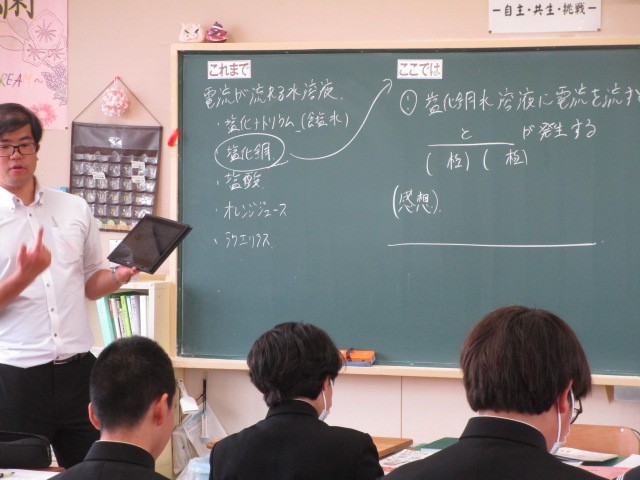 自主・共生・挑戦
REAM
これまで
電流が流れる水溶液.
・塩化ナトリウム(食塩水)
塩化銅
・塩酸
・オレンジジュース
・ラクエリアス
ここでは
塩化銅水溶液に電流を流す
と が発生する
( 極) ( 極)
(感想).